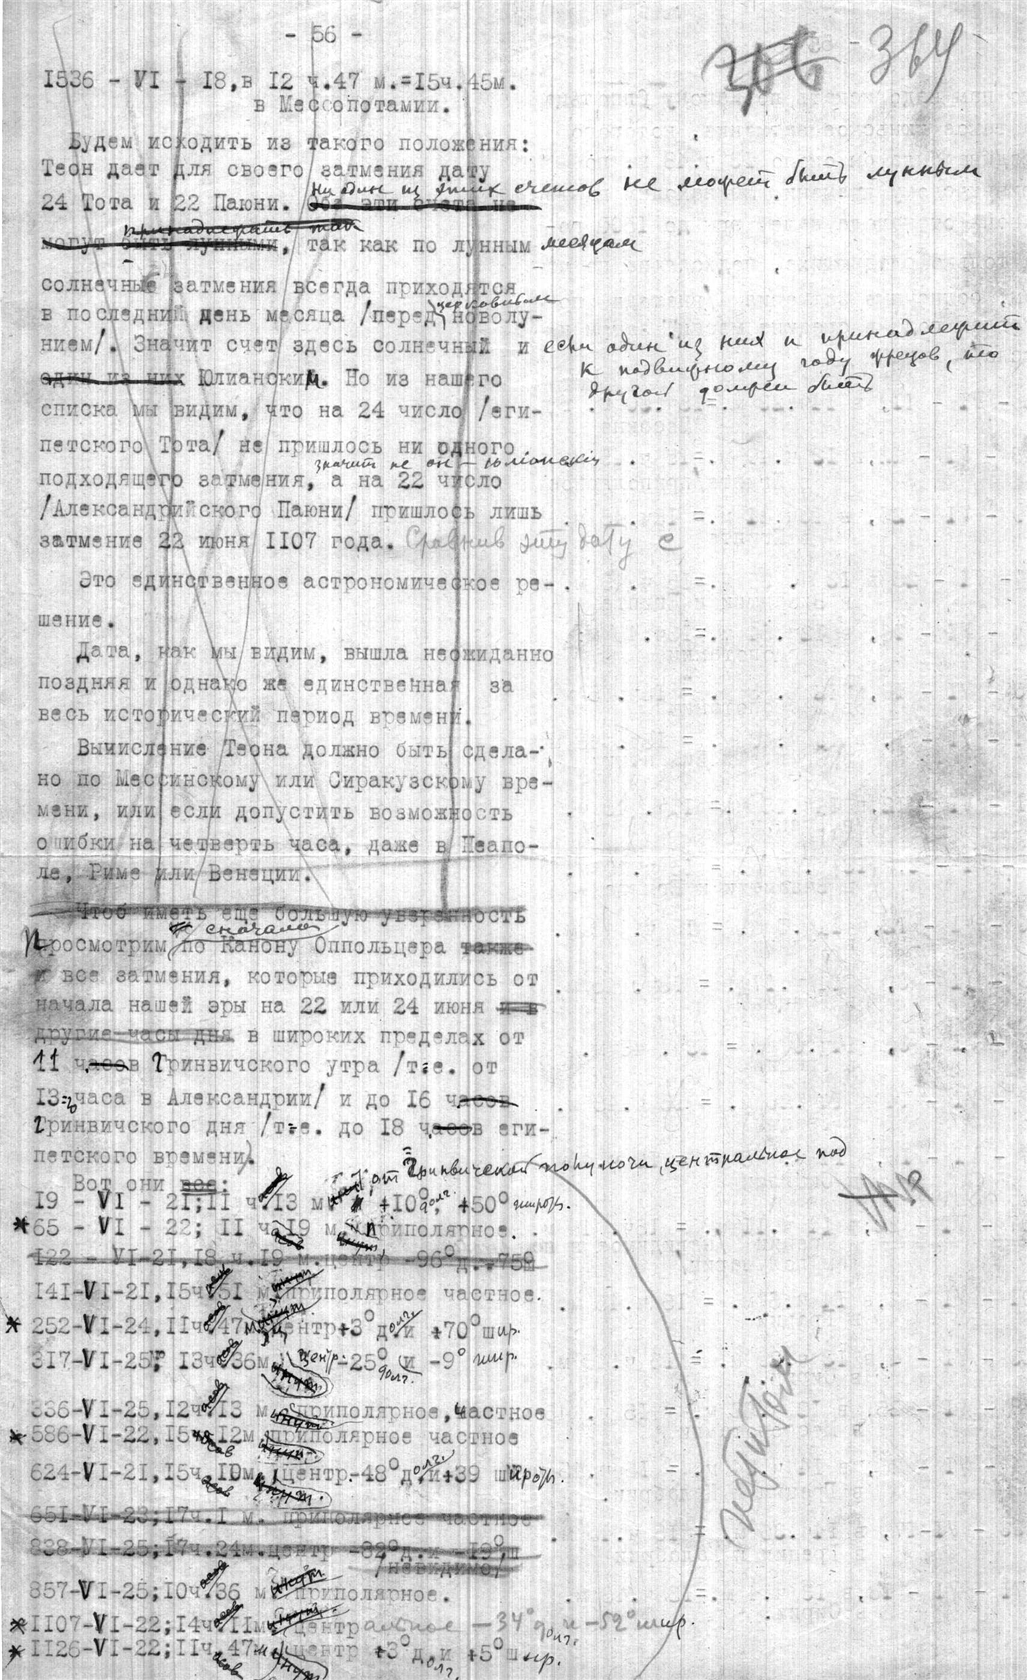 - 56 -
364
1536 - VI - 18, в 12 ч.47 м.=15ч.45м.
в Мессопотамии.
Будем исходить из такого положения:
Теон дает для своего затмения дату
ни один из этих счетов не может быть лунным
24 Тота и 22 Паюни. обе эти счета не
принадлежать
могут быть лунными, так как по лунным месяцам
солнечные затмения всегда приходятся
в последний день месяца /перед церковным новолу-
нием/. Значит счет здесь солнечный и если один из них и принадлежит
к подвижному году жрецов, то
другой должен быть
один из них Юлианским. Но из нашего
списка мы видим, что на 24 число /еги-
петского Тота/ не пришлось ни одного
значит не он - юлианский
подходящего затмения, а на 22 число
/Александрийского Паюни/ пришлось лишь
затмение 22 июня 1107 года. Сравнив эту дату с
Это единственное астрономическое ре-
шение.
Дата, как мы видим, вышла неожиданно
поздняя и однако же единственная за
весь исторический период времени.
Вычисление Теона должно быть сдела-
но по Мессинскому или Сиракузскому вре-
мени, или если допустить возможность
ошибки на четверть часа, даже в Неапо-
ле, Риме или Венеции.
Чтоб иметь еще большую уверенность
сначала
Просмотрим по Канону Оппольцера также
и все затмения, которые приходились от
начала нашей эры на 22 или 24 июня и в
другие часы дня в широких пределах от
11 часов Гринвичского утра /т.е. от
13 часа в Александрии/ и до 16 часов
Гринвичского дня /т.е. до 18 часов еги-
петского времени/.
от Гринвической полуночи, центральное под
Вот они все:
19 - VI - 21; 11 ч. 13 м. +10° долг., +50° широты.
*65 - VI - 22; 11 ч. 19 м. приполярное.
122 - VI-21, 18 ч. 19 м. центр -96° д. +75°ш
141-VI-21, 15ч. 51 м. приполярное частное.
* 252-VI-24, 11ч. 47м. центр +3° долг. и +70° шир.
317-VI-25; 13ч. 36м. центр. -25° долг. и -9° шир.
336-VI-25, 12ч. 13 м. приполярное, частное
* 586-VI-22, 15ч. 12м. приполярное частное
624-VI-21, 15ч. 10м. центр.-48° долг. и +39 широты.
651-VI-23; 17ч. 1 м. приполярное частное
838-VI-25; 17ч. 24м. центр -82° д. и -19° ш
/невидимо/
857-VI-25; 10ч. 36 м. приполярное.
*1107-VI-22; 14ч. 11м. центральное -34° долг. и -52° шир.
*1126-VI-22; 11ч. 47м. центр +3° долг. и +5° шир.